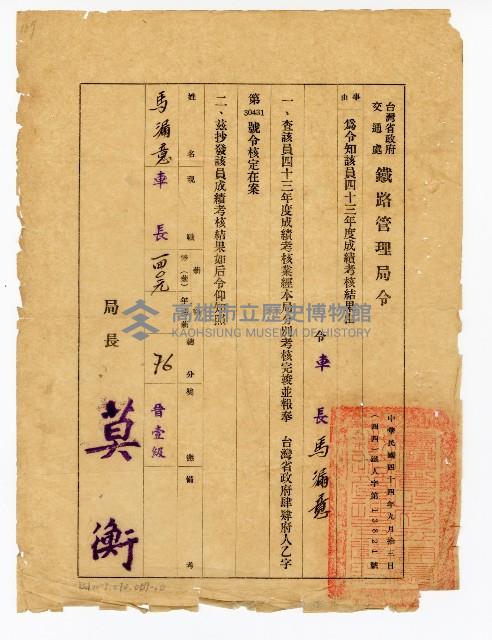 台灣省政府交通處 鐵路管理局令
中華民國四十四年九月拾二日
(四四)鐵人字第13821號
事由 為令知該員四十三年度成績考核結果由
令 車長 馬漏意
一、查該員四十三年度成績考核業經本局分別考核完竣並報奉 台灣省政府肆肆府人乙字
第30431號令核定在案
二、茲抄發該員成績考核結果如后令仰知照
姓名 現職 年 總分 獎 備考
馬漏意 車長 四元 76 晉壹級
局長 莫衡
高雄市立歷史博物館
KAOHSIUNG MUSEUM OF HISTORY